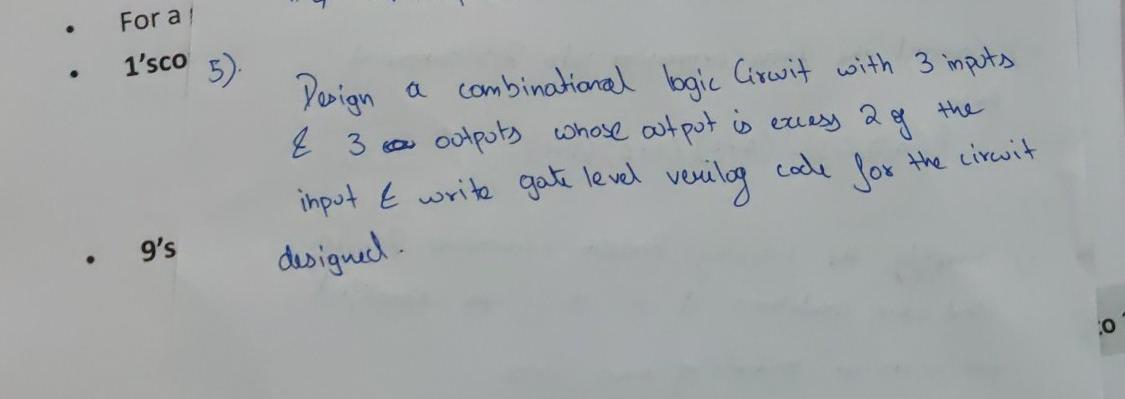 For a
1'sco
5). Design a combinational logic Circuit with 3 inputs
& 3 outputs whose output is excess 2 of the
input & write gate level verilog code for the circuit
9's
designed.
:o